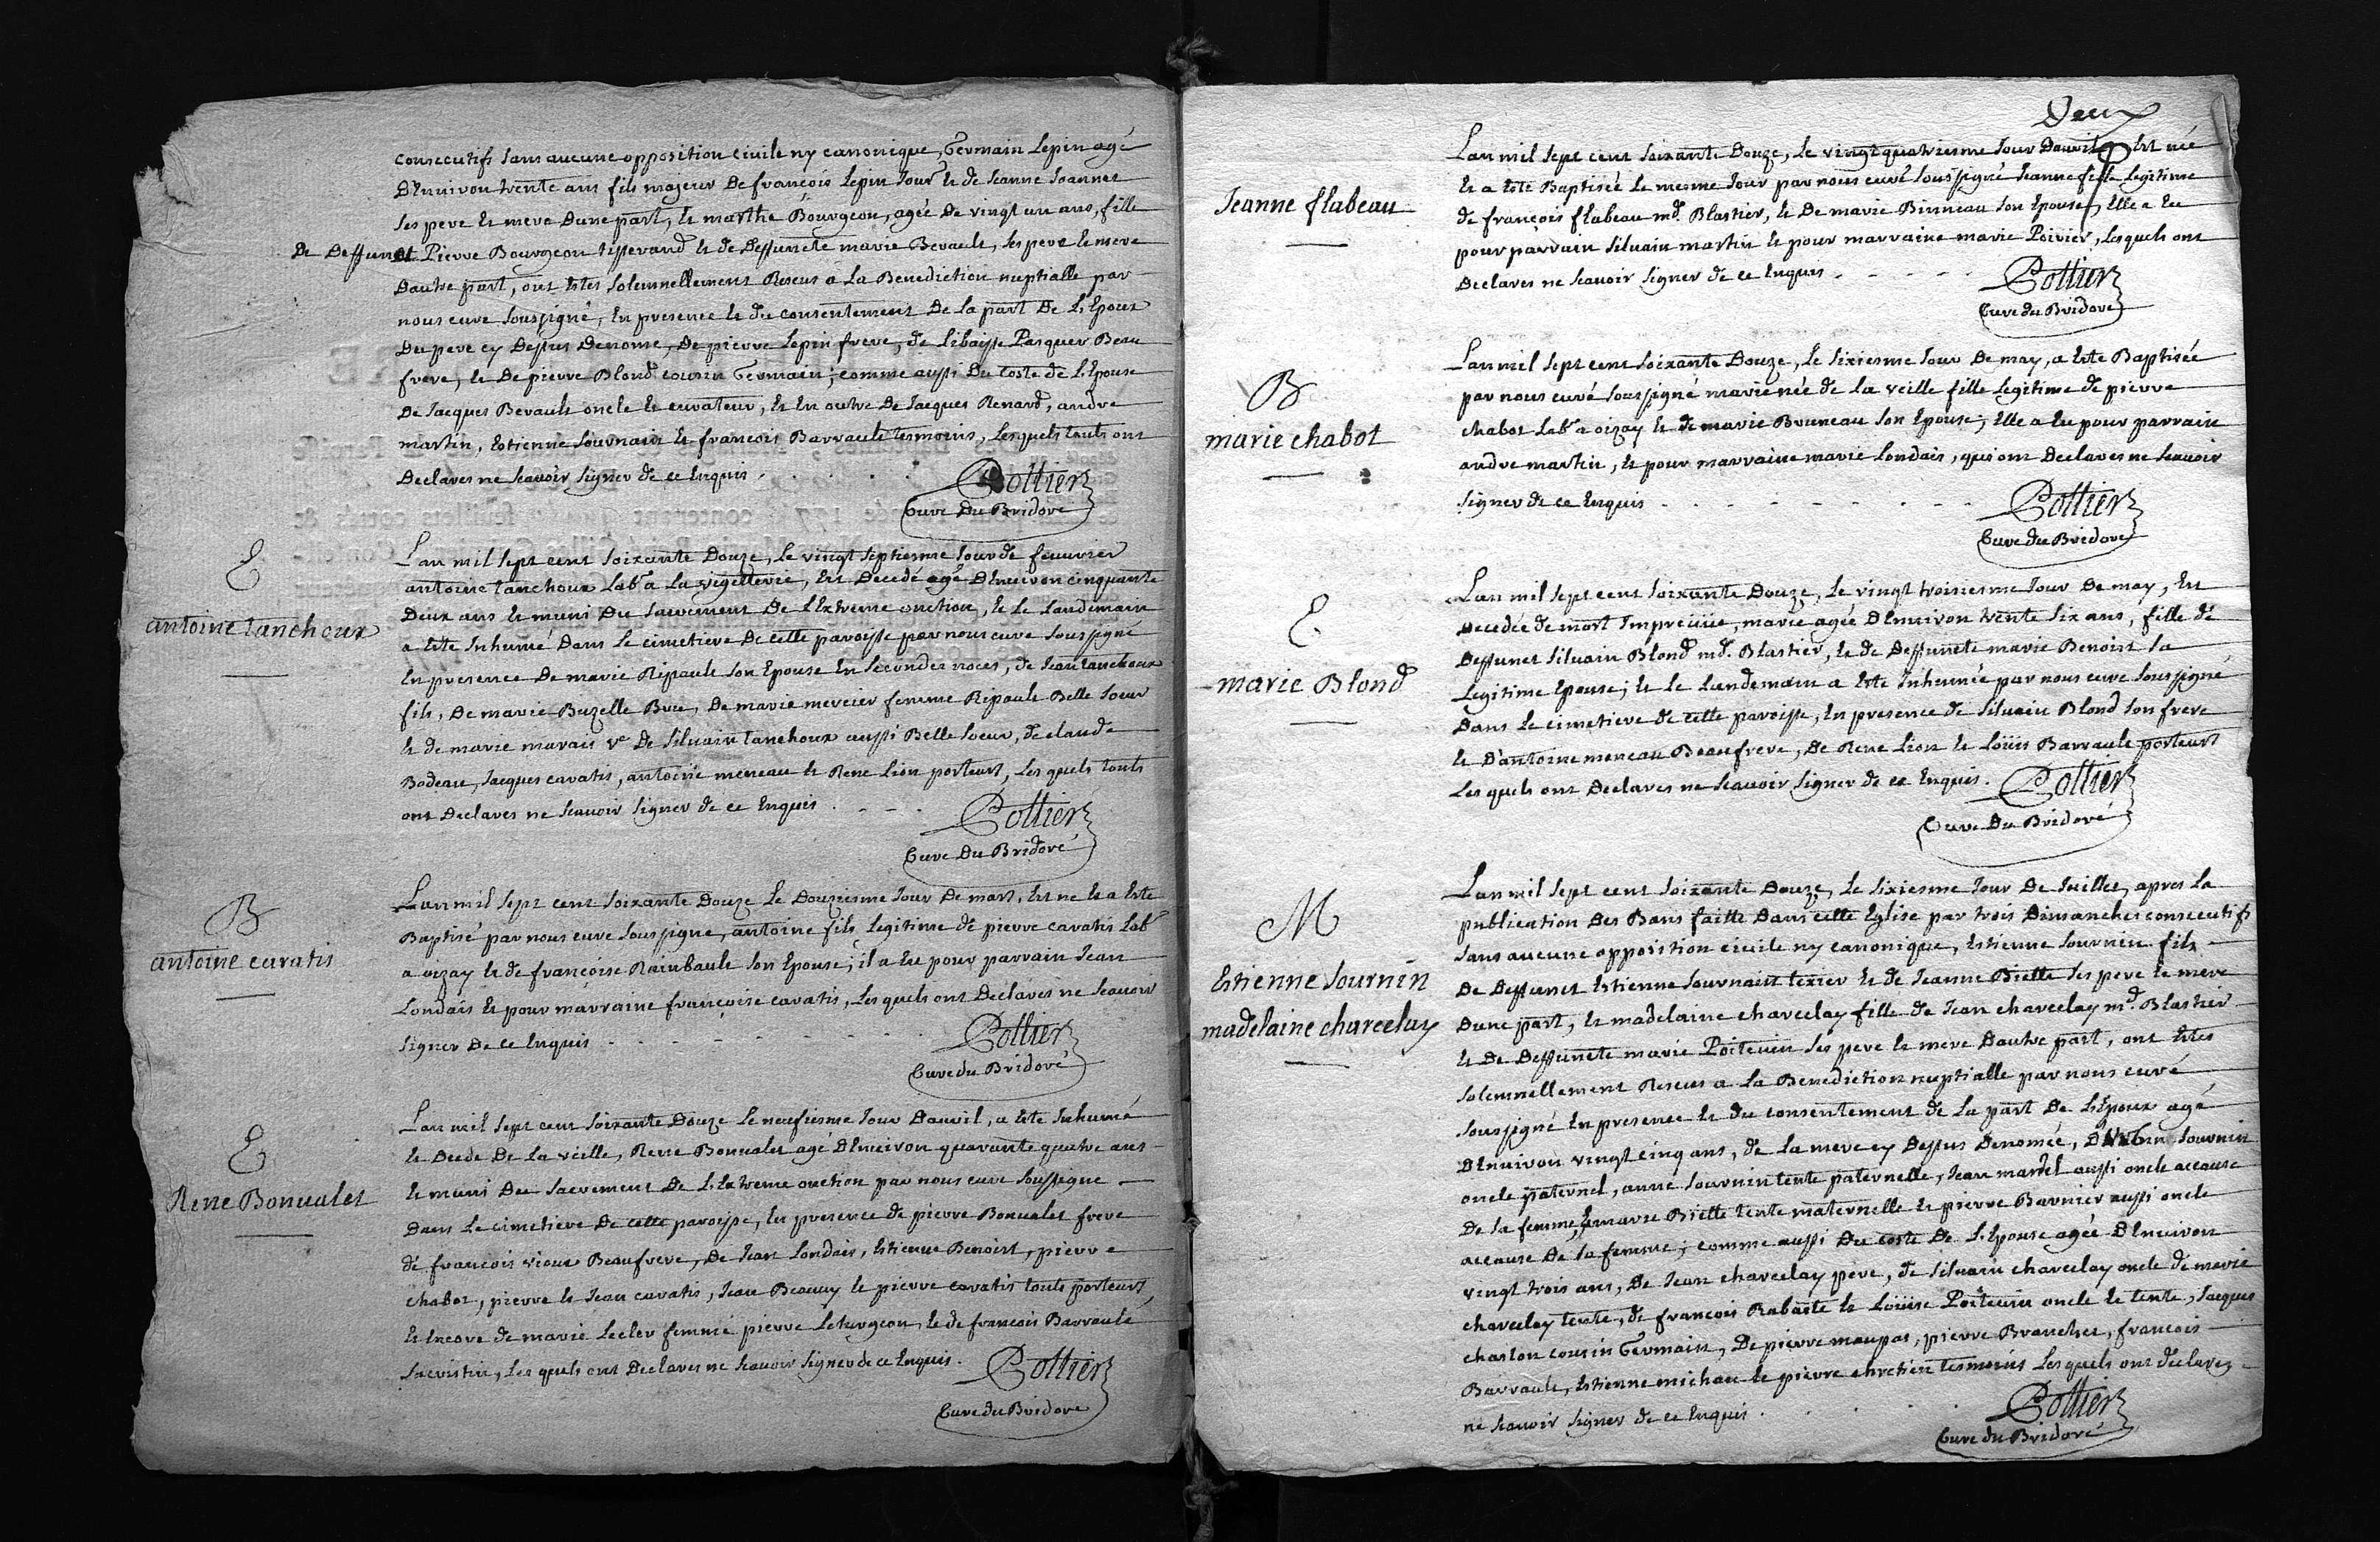 consecutifs sans aucune opposition civile ny canonique, Germain Lepin agé
D'Enuiron trente ans fils majeur De francois Lepin Jour.r & de Jeanne Joannet
ses pere & mere Dune part, & marthe Bourgeon, agée De vingt un ans, fille
De Deffunct Pierre Bourgeon tisserand & de Deffuncte marie Berault, ses pere & mere
Dautre part, ont Estes solemnellement Reseus a La Benediction nuptialle par
nous curé soussigné, En presence & du consentement De La part De L'Epoux
Du pere cy Dessus Denomé, De pierre Lepin frere, de Pasquer Beau
frere, & De pierre Blond cousin Germain; comme aussi Du Costé de L'Epouse
De Jacques Berault oncle & curateur, & En outre De Jacques Renard, andre
martin, Estienne Sournain & francois Barrault tesmoins, Lesquels touts ont
Declarés ne scauoir signer de ce Enquis
Pottier
Curé Du Bridoré
E
antoine tanchoux
L'an mil sept cent soixante Douze, Le vingt septiesme Jour de feuurier
antoine tanchoux Lab.r a La vigellerie, Est Decedé agé D'Enuiron cinquante
Deux ans & muni Du sacrement De L'Extreme onction, & Le Landemain
a Esté Inhumé Dans Le cimetiere De cette paroisse par nous curé soussigné
En presence De marie Ripault son Epouse En secondes noces, de Jean tanchoux
fils, De marie Buzelle Bru, De marie mercier femme Ripault Belle soeur
& de marie marais v.e De siluain tanchoux aussi Belle soeur, de claude
Bodeau, Jacques caratis, antoine meneau & Rene Lion porteurs, Les quels touts
ont Declarés ne scauoir signer de ce Enquis
Pottier
Curé Du Bridoré
B
antoine caratis
L'an mil sept cent soixante Douze Le Douziesme Jour De mars, Est né & a Esté
Baptisé par nous curé soussigné, antoine fils Legitime de pierre caratis Lab.r
a oizay & de françoise Raimbault son Epouse; il a Eu pour parrain Jean
Londais & pour marraine françoise caratis, Les quels ont Declarés ne scauoir
signer De ce Enquis
Pottier
Curé du Bridoré
E
Rene Bonualet
L'an mil sept cent soixante Douze Le neufiesme Jour Dauril, a Esté Inhumé
& Decedé De La veille, Rene Bonualet agé D'Enuiron quarante quatre ans
& muni Du sacrement De L'Extreme onction par nous curé soussigné
Dans Le cimetiere De cette paroisse, En presence de pierre Bonualet frere
de francois vioux Beaufrere, De Jean Londais, Estienne Benoist, pierre
chabot, pierre & Jean caratis, Jean Beauuy & pierre caratis touts porteurs
& Encore de marie Lecler femme pierre Leturgeon, & de francois Barrault
sacristin, Les quels ont Declarés ne scauoir signer de ce Enquis.
Pottier
Curé du Bridoré
Deux
Jeanne flabeau
L'an mil sept cent soixante Douze, Le vingt quatriesme Jour Dauril Est née
& a Esté Baptisée Le mesme Jour par nous curé soussigné Jeanne fille Legitime
de françois flabeau m.d Blastier, & De marie Binneau son Epouse, Elle a Eu
pour parrain siluain martin & pour marraine marie Poirier, Lesquels ont
Declarés ne scauoir signer de ce Enquis
Pottier
Curé du Bridoré
B
marie chabot
L'an mil sept cent soixante Douze, Le sixiesme Jour De may, a Esté Baptisée
par nous curé soussigné marie née de La veille fille Legitime de pierre
chabot Lab.r a oizay & de marie Bruneau son Epouse; Elle a Eu pour parrain
andre martin, & pour marraine marie Londais, qui ont Declarés ne scauoir
signer de ce Enquis
Pottier
Curé du Bridoré
E
marie Blond
L'an mil sept cent soixante Douze, Le vingt troisiesme Jour De may, Est
Decedée de mort Impreüüe, marie agée D'Enuiron trente six ans, fille de
Deffunct siluain Blond m.d Blastier, & de Deffuncte marie Benoist sa
Legitime Epouse; & Le Lendemain a Esté Inhumée par nous curé soussigné
Dans Le cimetiere de cette paroisse, En presence de siluain Blond son frere
& D'antoine meneau Beaufrere, De Rene Lion & Loüis Barrault porteurs
Les quels ont Declarés ne scauoir signer de ce Enquis.
Pottier
Curé Du Bridoré
M
Estienne Sournin
madelaine charcelay
L'an mil sept cent soixante Douze, Le sixiesme Jour De Juillet, apres La
publication Des Bans faitte Dans cette Eglise par trois Dimanches consecutifs
sans aucune opposition civile ny canonique, Estienne sournin fils
De Deffunct Estienne sournain texier & de Jeanne Biette ses pere & mere
Dune part, & madelaine charcelay fille de Jean charcelay m.d Blastier
& De Deffuncte marie Poiteuin ses pere & mere Dautre part, ont Estes
solemnellement Reseus a La Benediction nuptialle par nous curé
soussigné En presence & du consentement de La part De L'Epoux agé
D'Enuiron vingt cinq ans, de La mere cy Dessus Denomée, sournin
oncle paternel, anne sournin tente paternelle, Jean mardel aussi oncle accause
De sa femme, & marie Biette tente maternelle & pierre Barnier aussi oncle
accause De sa femme; comme aussi Du costé De L'Epouse agée D'Enuiron
vingt trois ans, De Jean charcelay pere, de siluain charcelay oncle de marie
charcelay tente, de francois Rabasté & Loüise Poiteuin oncle & tente, Jacques
charlon cousin Germain, De pierre maupas, pierre Branchet, francois
Barrault, Estienne michau & pierre chretien tesmoins Lesquels ont declarez
ne scauoir signer de ce Enquis
Pottier
Curé du Bridoré